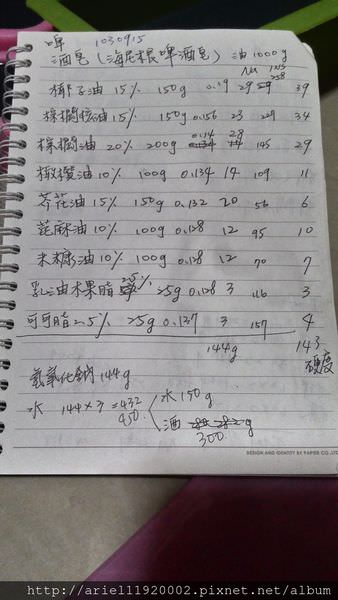 啤 1030915
酒皂(海尼根啤酒皂) 油1000g
NaOH INS
258
椰子油 15% 150g 0.19 29 39
棕櫚核油 15% 150g 0.156 23 227 34
0.14 28
棕櫚油 20% 200g 145 29
橄欖油 10% 100g 0.134 14 109 11
芥花油 15% 150g 0.132 20 56 6
蓖麻油 10% 100g 0.128 12 95 10
米糠油 10% 100g 0.128 12 70 7
乳油木果脂 2.5% 25g 0.128 3 116 3
可可脂 2.5% 25g 0.137 3 157 4
144g 143
硬度
氫氧化鈉 144g
水 144×3=432 水 150g
450 酒 g
300
DESIGN AND IDENTITY BY PAPER CO.,LTD
http://ariel11920002.pixnet.net/album